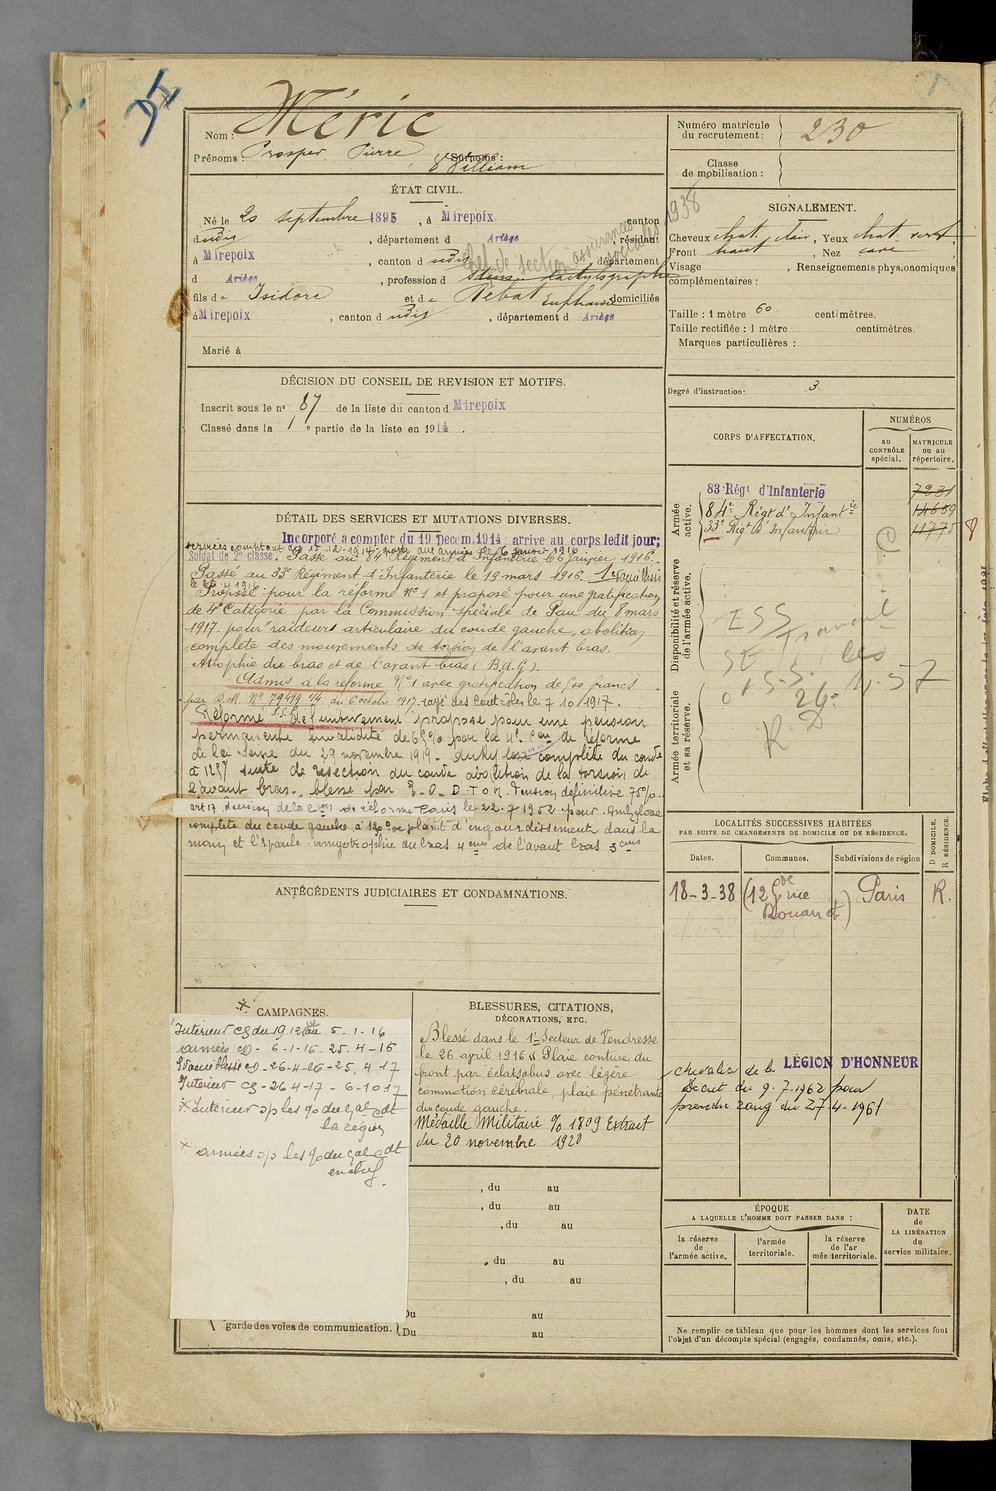 Nom : Méric
Prénoms : Prosper, Pierre William
Surnoms :
ÉTAT CIVIL.
Né le 20 septembre 1895, à Mirepoix canton
dudis, département d Ariège, résidant
à Mirepoix, canton d udis département
d Ariège, profession d sténo-dactylographe
Chef de section assurances sociales 1938
fils de Isidore et de Rebat Euphanie domiciliés
à Mirepoix, canton d udis, département d Ariège
Marié à
DÉCISION DU CONSEIL DE REVISION ET MOTIFS.
Inscrit sous le n° 87 de la liste du canton d Mirepoix
Classé dans la 1e partie de la liste en 1914.
DÉTAIL DES SERVICES ET MUTATIONS DIVERSES.
Incorporé a compter du 19 Decem.1914; arrive au corps ledit jour;
Soldat de 2e classe. Passé au 84e Régiment d'Infanterie le 6 janvier 1916.
Passé au 33e Régiment d'Infanterie le 19 mars 1916.
Proposé pour la réforme N°1 et proposé pour une gratification
de 4e Catégorie par la Commission spéciale de Pau du 8 mars
1917 pour "raideurs articulaire du coude gauche, abolition
complète des mouvements de torsion de l'avant bras.
Atrophie du bras et de l'avant bras (B.d.G).
Admis à la réforme N°1 avec gratification de 600 francs
par D.M. N° 79479 74 du 6 octobre 1917 rayé des contrôles le 7/10/1917.
Réformé définitivement proposé pour une pension
permanente invalidité de 65% par la 4e Con de réforme
de la Seine du 29 novembre 1919. complète du coude
à 125° suite de résection du coude abolition de la torsion de
l'avant bras. blessé par E.O.D.T.O.M. Pension définitive 75%.
art 17 décision de la Con de réforme Paris le 22.7.1952 pour: Ankylose
complète du coude gauche à 120° se plaint d'engourdissements dans la
main et l'épaule amyotrophie du bras 4 cms de l'avant bras 3 cms
ANTÉCÉDENTS JUDICIAIRES ET CONDAMNATIONS.
* CAMPAGNES.
Intérieur CS du 19.12.14 au 5-1-16
armées CD- 6-1-16- 25.4-16
Evac. blessé CD-26-4-16-25.4 17
Intérieur CS-26 4-17- 6-10 17
* Intérieur s/p les go du gal cdt
la région
* armées s/p les go du gal cdt
en chef.
garde des voies de communication.
BLESSURES, CITATIONS,
DÉCORATIONS, ETC.
Blessé dans le 1er Secteur de Vendresse
le 26 avril 1916 "Plaie contuse du
front par éclats obus avec légère
commotion cérébrale, plaie pénétrante
du coude gauche.
Médaille Militaire % 1809 Extrait
du 20 novembre 1920
, du au
, du au
, du au
, du au
, du au
Du au
Du au
Numéro matricule
du recrutement: 230
Classe
de mobilisation :
SIGNALEMENT.
Cheveux chat. clair, Yeux chat. vert,
Front haut, Nez cave
Visage , Renseignements physionomiques
complémentaires :
Taille : 1 mètre 60 centimètres.
Taille rectifiée : 1 mètre centimètres.
Marques particulières :
Degré d'instruction: 3
CORPS D'AFFECTATION.
NUMÉROS
au
CONTRÔLE
spécial.
MATRICULE
ou au
répertoire.
Armée
active.
83 Régt d'Infanterie 7231
84e Régt d'Infantie 14689
33e Régt d'Infanterie 11775
Disponibilité et réserve
de l'armée active.
Armée territoriale
et sa réserve.
ESS
Travail
LOCALITÉS SUCCESSIVES HABITÉES
PAR SUITE DE CHANGEMENTS DE DOMICILE OU DE RÉSIDENCE.
Dates. Communes. Subdivisions de région
D DOMICILE.
R RÉSIDENCE.
18-3-38 (12 Gde rue Paris R.
chevalier de la LÉGION D'HONNEUR
Décret du 9-7-1962 pour
prendre rang du 27-4-1961
ÉPOQUE
A LAQUELLE L'HOMME DOIT PASSER DANS :
la réserve
de
l'armée active.
l'armée
territoriale.
la réserve
de l'ar
mée territoriale.
DATE
de
LA LIBÉRATION
du
service militaire.
Ne remplir ce tableau que pour les hommes dont les services font
l'objet d'un décompte spécial (engagés, condamnés, omis, etc.).